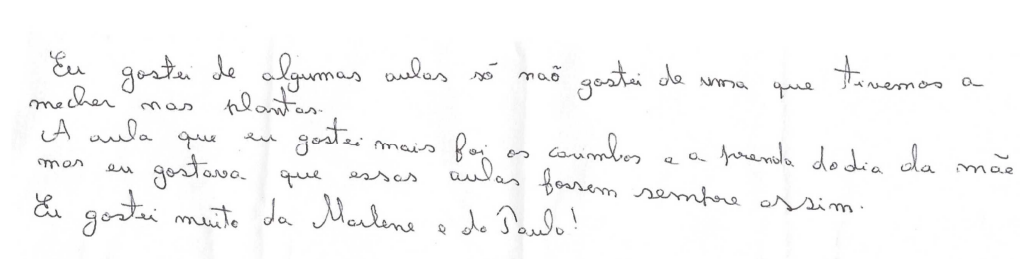 Eu gostei de algumas aulas só naõ gostei de uma que tivemos a
mecher nas plantas.
A aula que eu gostei mais foi os carimbos e a prenda do dia da mãe
mas eu gostava que essas aulas fossem sempre assim.
Eu gostei muito da Marlene e do Paulo!